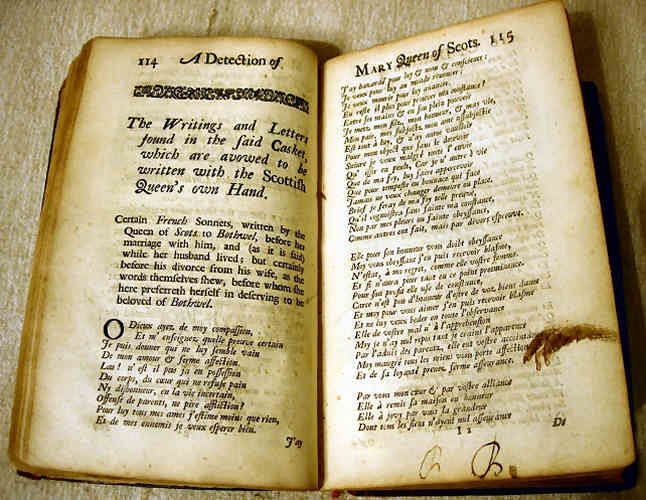 114 A Detection of
The Writings and Letters
found in the said Casket,
which are avowed to be
written with the Scottish
Queen's own Hand.
Certain French Sonnets, written by the
Queen of Scots to Bothwel, before her
marriage with him, and (as it is said)
while her husband lived; but certainly
before his divorce from his wife, as the
words themselves shew, before whom she
here preferreth herself in deserving to be
beloved of Bothwel.
O Dieux ayez de moy compassion,
Et m' enseignez, quelle preuve certain
Je puis donner qui ne luy semble vain
De mon amour & ferme affection.
Las! n' est il pas ja en possession
Du corps, du cœur qui ne refuse pain
Ny dishonneur, en la vie incertain,
Offense de parents, ne pire affliction?
Pour luy tous mes amis j'estime moins que rien,
Et de mes ennemis je veux esperer bien.
J'ay
MARY Queen of Scots. 115
J'ay hazardé pour luy & nom & conscience:
Je veux pour luy au monde renoncer:
Je veux mourir pour luy avancer.
En reste il plus pour prouver ma constance?
Entre ses mains & en son plein pouvoir
Je metz mon filz, mon honneur, & ma vie,
Mon pais, mes subjects, mon ame assubjectie
Est tout à luy, & n'ay autre vouloir
Pour mon object que sans le decevoir
Suivre je veux malgré toute l' envie
Qu' issir en peult, Car je n' autre à vie
Que de ma foy, luy faire appercevoir
Que pour tempeste ou bonnace qui face
Jamais ne veux changer demeure ou place.
Brief je feray de ma foy telle preuve,
Qu'il cognoistra sans fainte ma constance,
Non par mes pleurs ou fainte obeyssance,
Comme autres ont fait, mais par divers espreuve.
Elle pour son honneur vous doibt obeyssance
Moy vous obeyssant j'en puis recevoir blasme,
N'estat, à mo regret, comme elle vostre femme.
Et si n'aura pour tant en ce point preeminence.
Pour son profit elle use de constance,
Car ce n'est peu d'honneur d'estre de voz biens dame
Et moy pour vous aimer j'en puis recevoir blasme
Et ne luy veux ceder en toute l'observance
Elle de vostre mal n' à l'apprehension
Moy je n'ay nul repos tant je crains l'apparence
Par l'advis des parents, elle eut vostre accointance
Moy maugré tous les miens vous porte affection
Et de sa loyauté prenez ferme asseurance.
Par vous mon cœur & par vostre alliance
Elle à remis sa maison en honneur
Elle à jovy par vous la grandeur
Dont tous les siens n'ayent nul asseurance
I 2 De